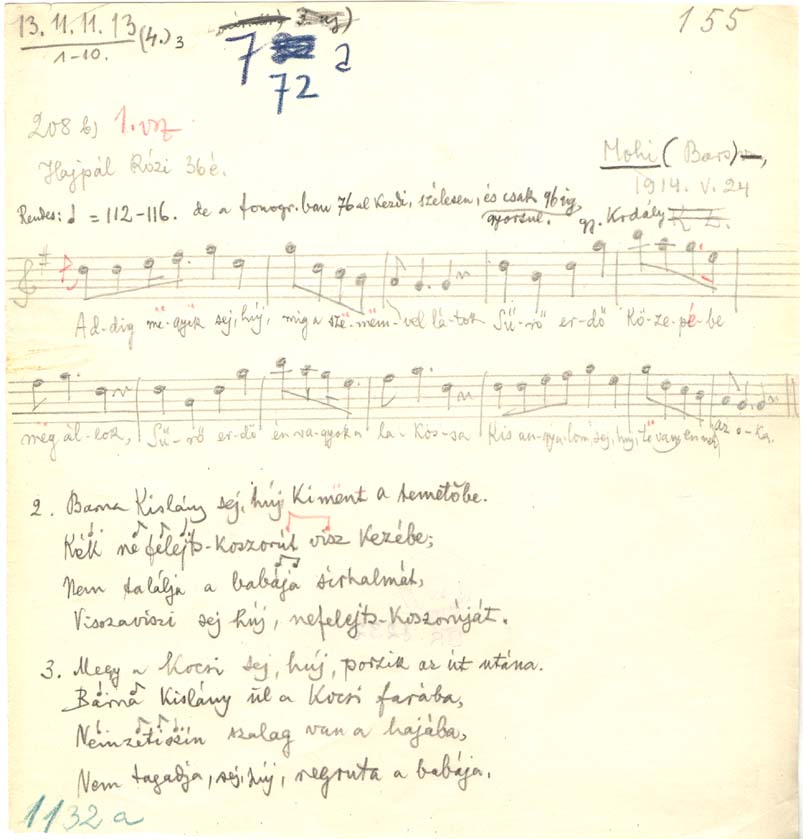 13. 11. 11. 13 (4.) 3
1-10.
155
7 a
72
208 b) 1. vsz
Hajpál Rózi 36 é.
Mohi (Bars),
1914. V. 24
Rendes: ♩ = 112-116. de a fonogr. ban 76 al kezdi, szélesen, és csak 96 ig
gyorsul. gy. Kodály
Ad-dig më-gyëk sej, húj, míg a szë-mëm-vel lá-tok Sű-rő er-dő kö-ze-pé-be
mëg ál-lok, Sű-rő er-dő én va-gyok a la-kos-sa Kis an-gya-lom, sej, húj, të vagy en-nek az o-ka.
2. Barna kislány sej, húj kimënt a temetőbe.
Kék nefelejts-koszorút visz kezébe;
Nem találja a babája sirhalmát,
Visszaviszi sej húj, nefelejts-koszorúját.
3. Megy a kocsi sej, húj, porzik az út utána.
Barna kislány ül a kocsi farába,
Nemzetiszín szalag van a hajába,
Nem tagadja, sej, húj, regruta a babája.
1132 a